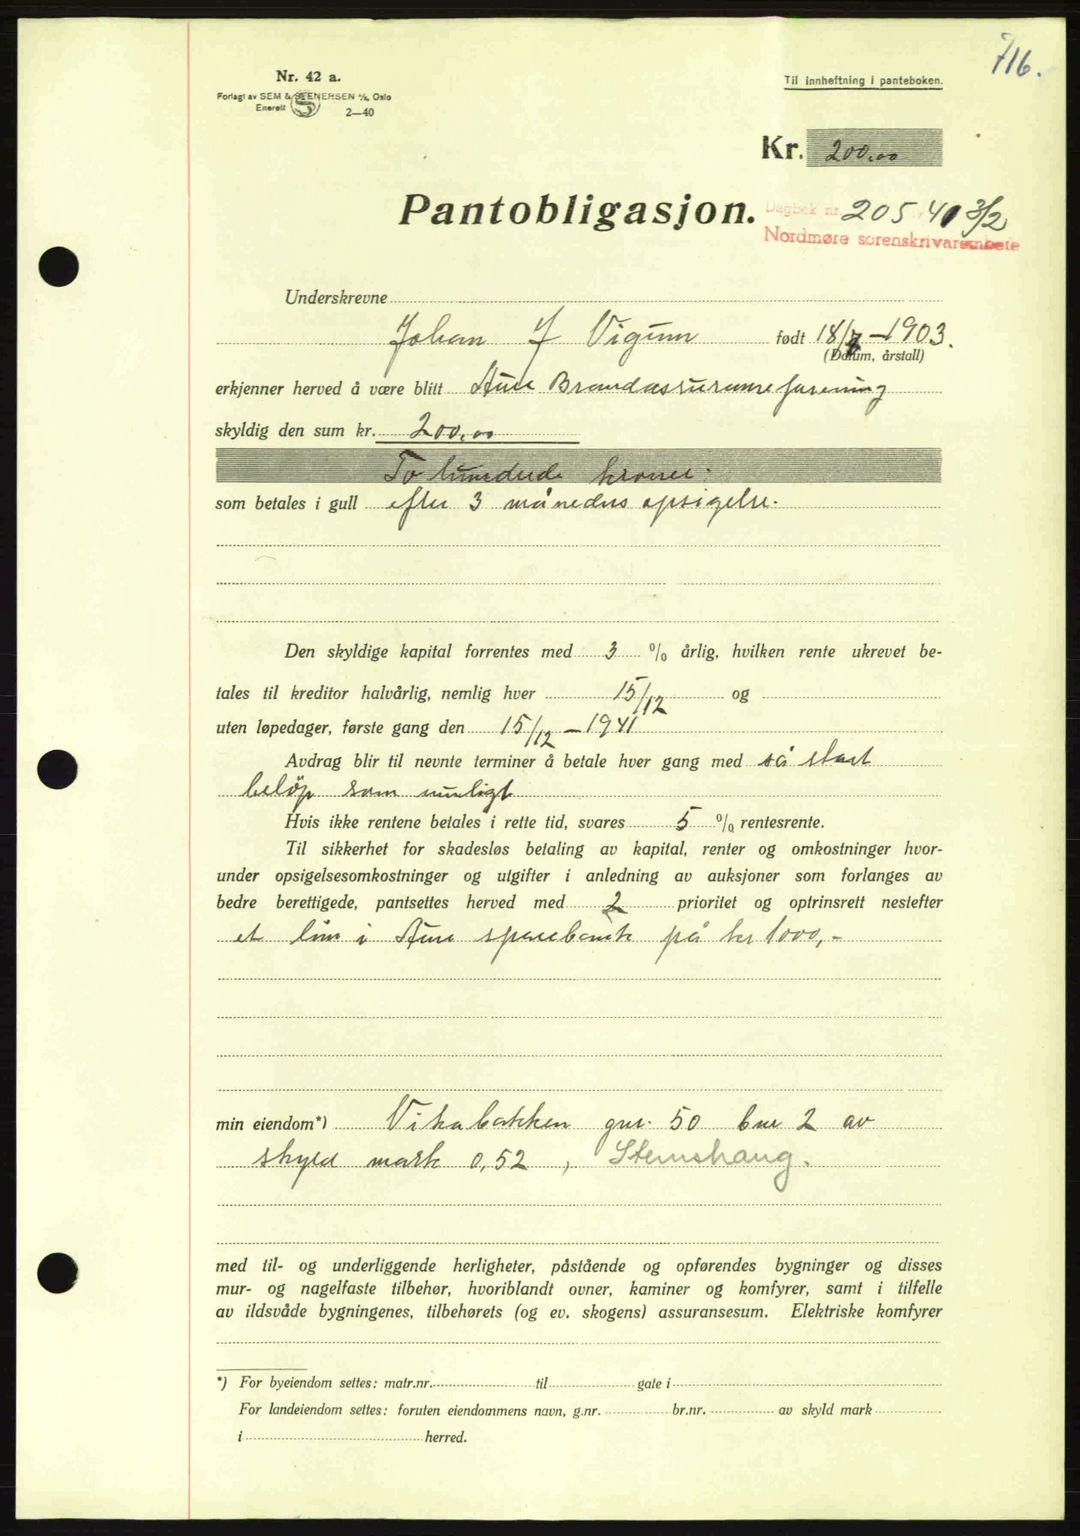 716.
Nr. 42 a.
Forlagt av SEM & STENERSEN A/S, Oslo
Enerett
2—40
Til innheftning i panteboken.
Kr. 200,00
Pantobligasjon.
Dagbok nr. 205 41 3/2
Nordmøre sorenskrivarembete
Underskrevne
Johan J Vigum født 18/7 - 1903.
(Datum, årstall)
erkjenner herved å være blitt Aure Brandassuranseforening
skyldig den sum kr. 200,00
To hundrede kroner.
som betales i gull efter 3 måneders opsigelse.
Den skyldige kapital forrentes med 3 % årlig, hvilken rente ukrevet be-
tales til kreditor halvårlig, nemlig hver 15/12 og
uten løpedager, første gang den 15/12 - 1941
Avdrag blir til nevnte terminer å betale hver gang med så stort
beløp som muligt
Hvis ikke rentene betales i rette tid, svares 5 % rentesrente.
Til sikkerhet for skadesløs betaling av kapital, renter og omkostninger hvor-
under opsigelsesomkostninger og utgifter i anledning av auksjoner som forlanges av
bedre berettigede, pantsettes herved med 2 prioritet og optrinsrett nestefter
et lån i Aure sparebank på kr 1000,-
min eiendom*) Vikabakken gnr. 50 bnr 2 av
skyld mark 0,52, Stemshaug.
med til- og underliggende herligheter, påstående og opførendes bygninger og disses
mur- og nagelfaste tilbehør, hvoriblandt ovner, kaminer og komfyrer, samt i tilfelle
av ildsvåde bygningenes, tilbehørets (og ev. skogens) assuransesum. Elektriske komfyrer
*) For byeiendom settes: matr.nr. til gate i
For landeiendom settes: foruten eiendommens navn, g.nr. br.nr. av skyld mark
i herred.